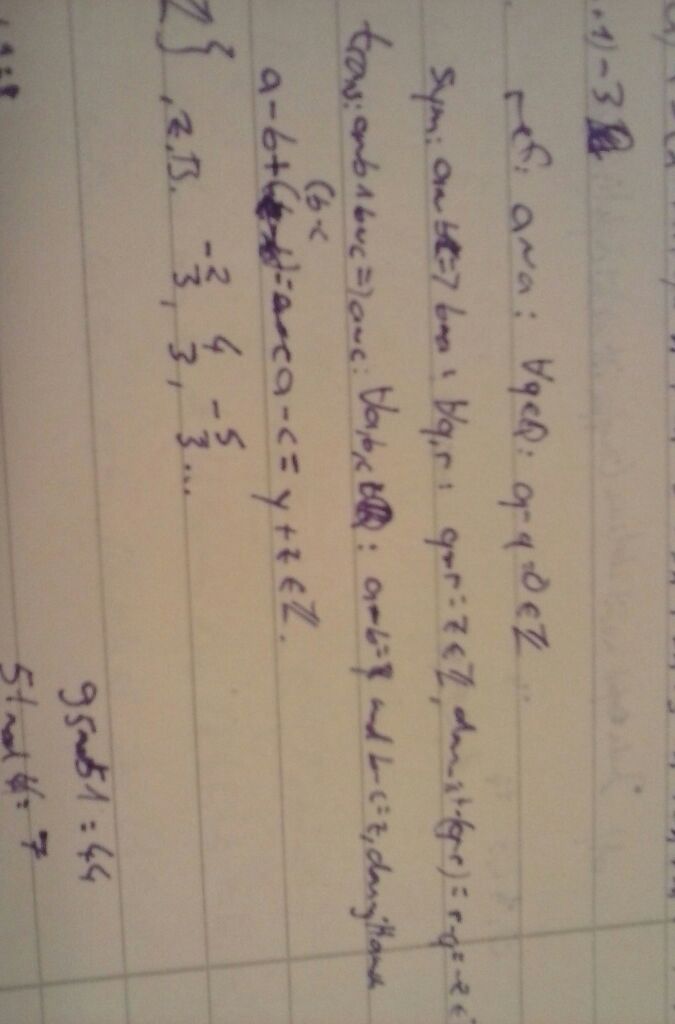 ,+1)-3
refl: a~a: ∀q∈Q: q-q=0∈ℤ
Sym: a~b=> b~a: ∀q,r: q-r=z∈ℤ, dann gilt -(q-r)=r-q=-z∈
trans: a~b∧b~c=>a~c: ∀a,b,c∈Q: a-b=y und b-c=z, dann gilt auch
(b-c
a-b+ )= a-c = y+z∈ℤ.
ℤ}, z.B. -2/3, 4/3, -5/3...
95 mod 51 = 44
51 mod 44 = 7